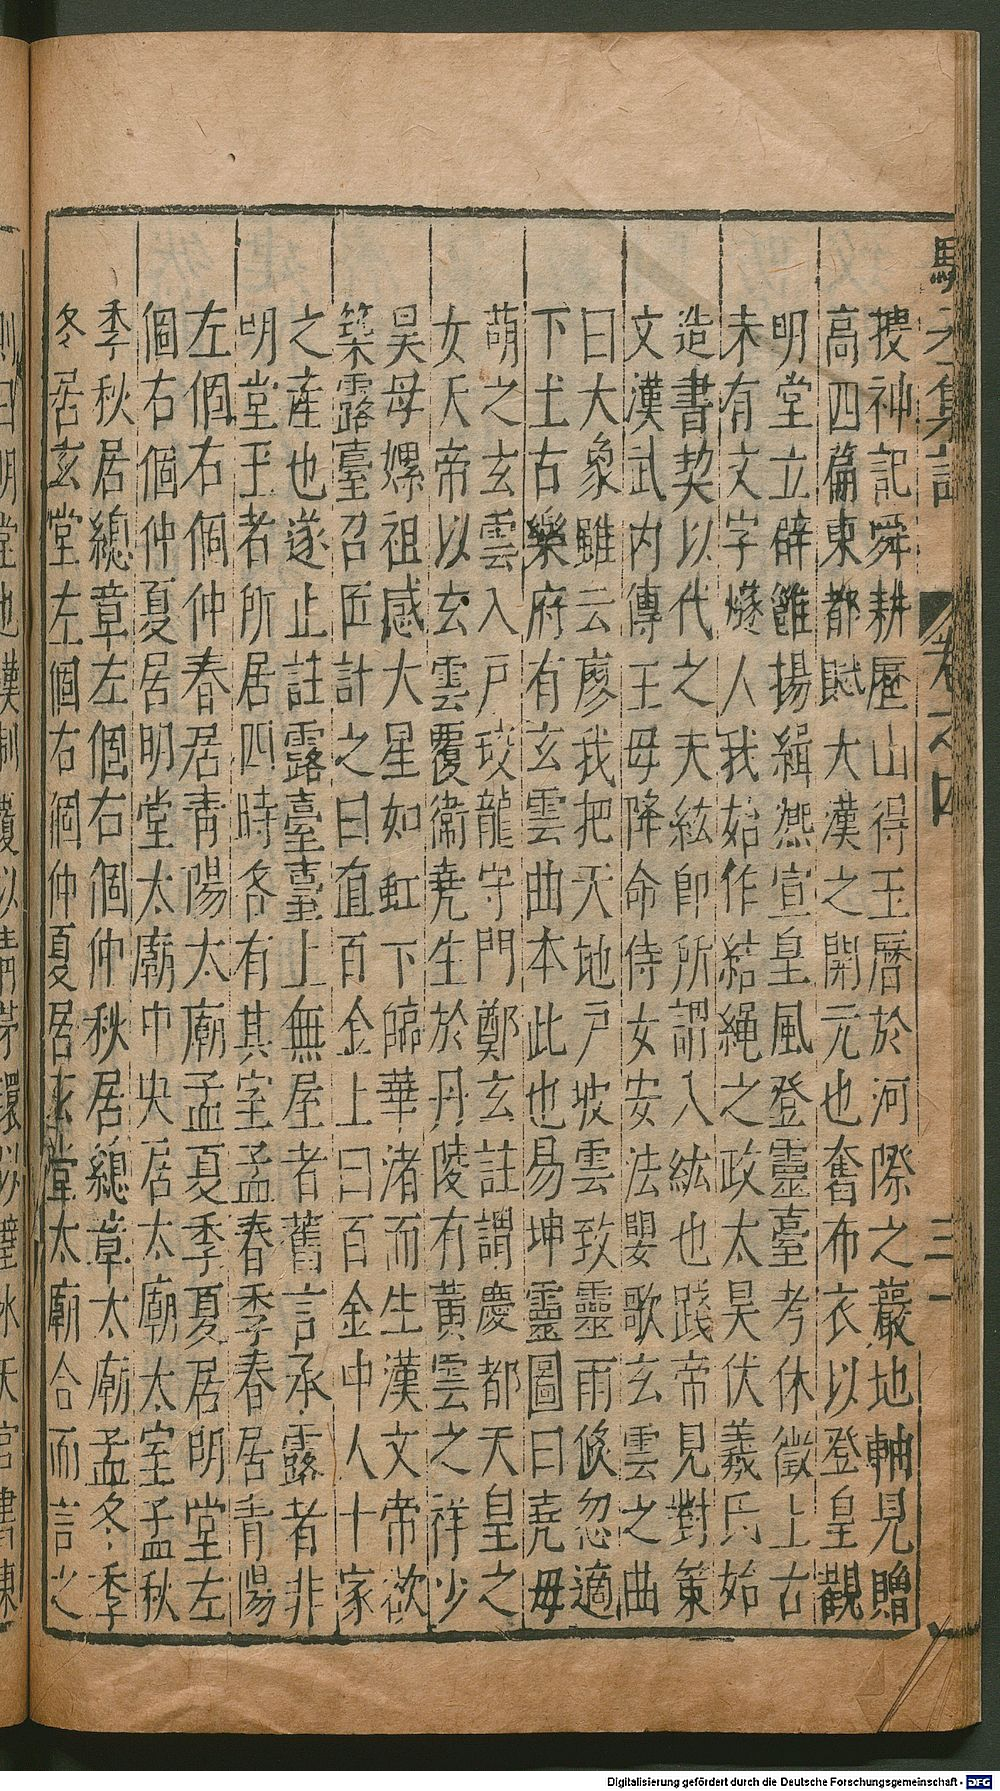 集註
卷之四
三一
搜神記舜耕歷山得玉曆於河際之巖地軸見贈
高四篇東都賦大漢之開元也奮布衣以登皇觀
明堂立辟雝揚緝熙宣皇風登靈臺考休徵上古
未有文字燧人我始作結繩之政太昊伏羲氏始
造書契以代之天紘卽所謂入紘也踐帝見對策
文漢武內傳王母降命侍女安法嬰歌玄雲之曲
曰大象雖云廖我把天地戶披雲致靈雨倏忽適
下土古樂府有玄雲曲本此也易坤靈圖曰堯毋
萌之玄雲入戶蛟龍守門鄭玄註謂慶都天皇之
女天帝以玄雲覆衞堯生於丹陵有黃雲之祥少
昊母嫘祖感大星如虹下臨華渚而生漢文帝欲
築露臺召匠計之曰直百金上曰百金中人十家
之產也遂止註露臺臺上無屋者舊言承露者非
明堂王者所居四時各有其室孟春季春居靑陽
左個右個仲春居靑陽太廟孟夏季夏居明堂左
個右個仲夏居明堂太廟中央居太廟太室孟秋
季秋居總章左個右個仲秋居總章太廟孟冬季
冬居玄堂左個右個仲夏居玄堂太廟合而言之
Digitalisierung gefördert durch die Deutsche Forschungsgemeinschaft - DFG